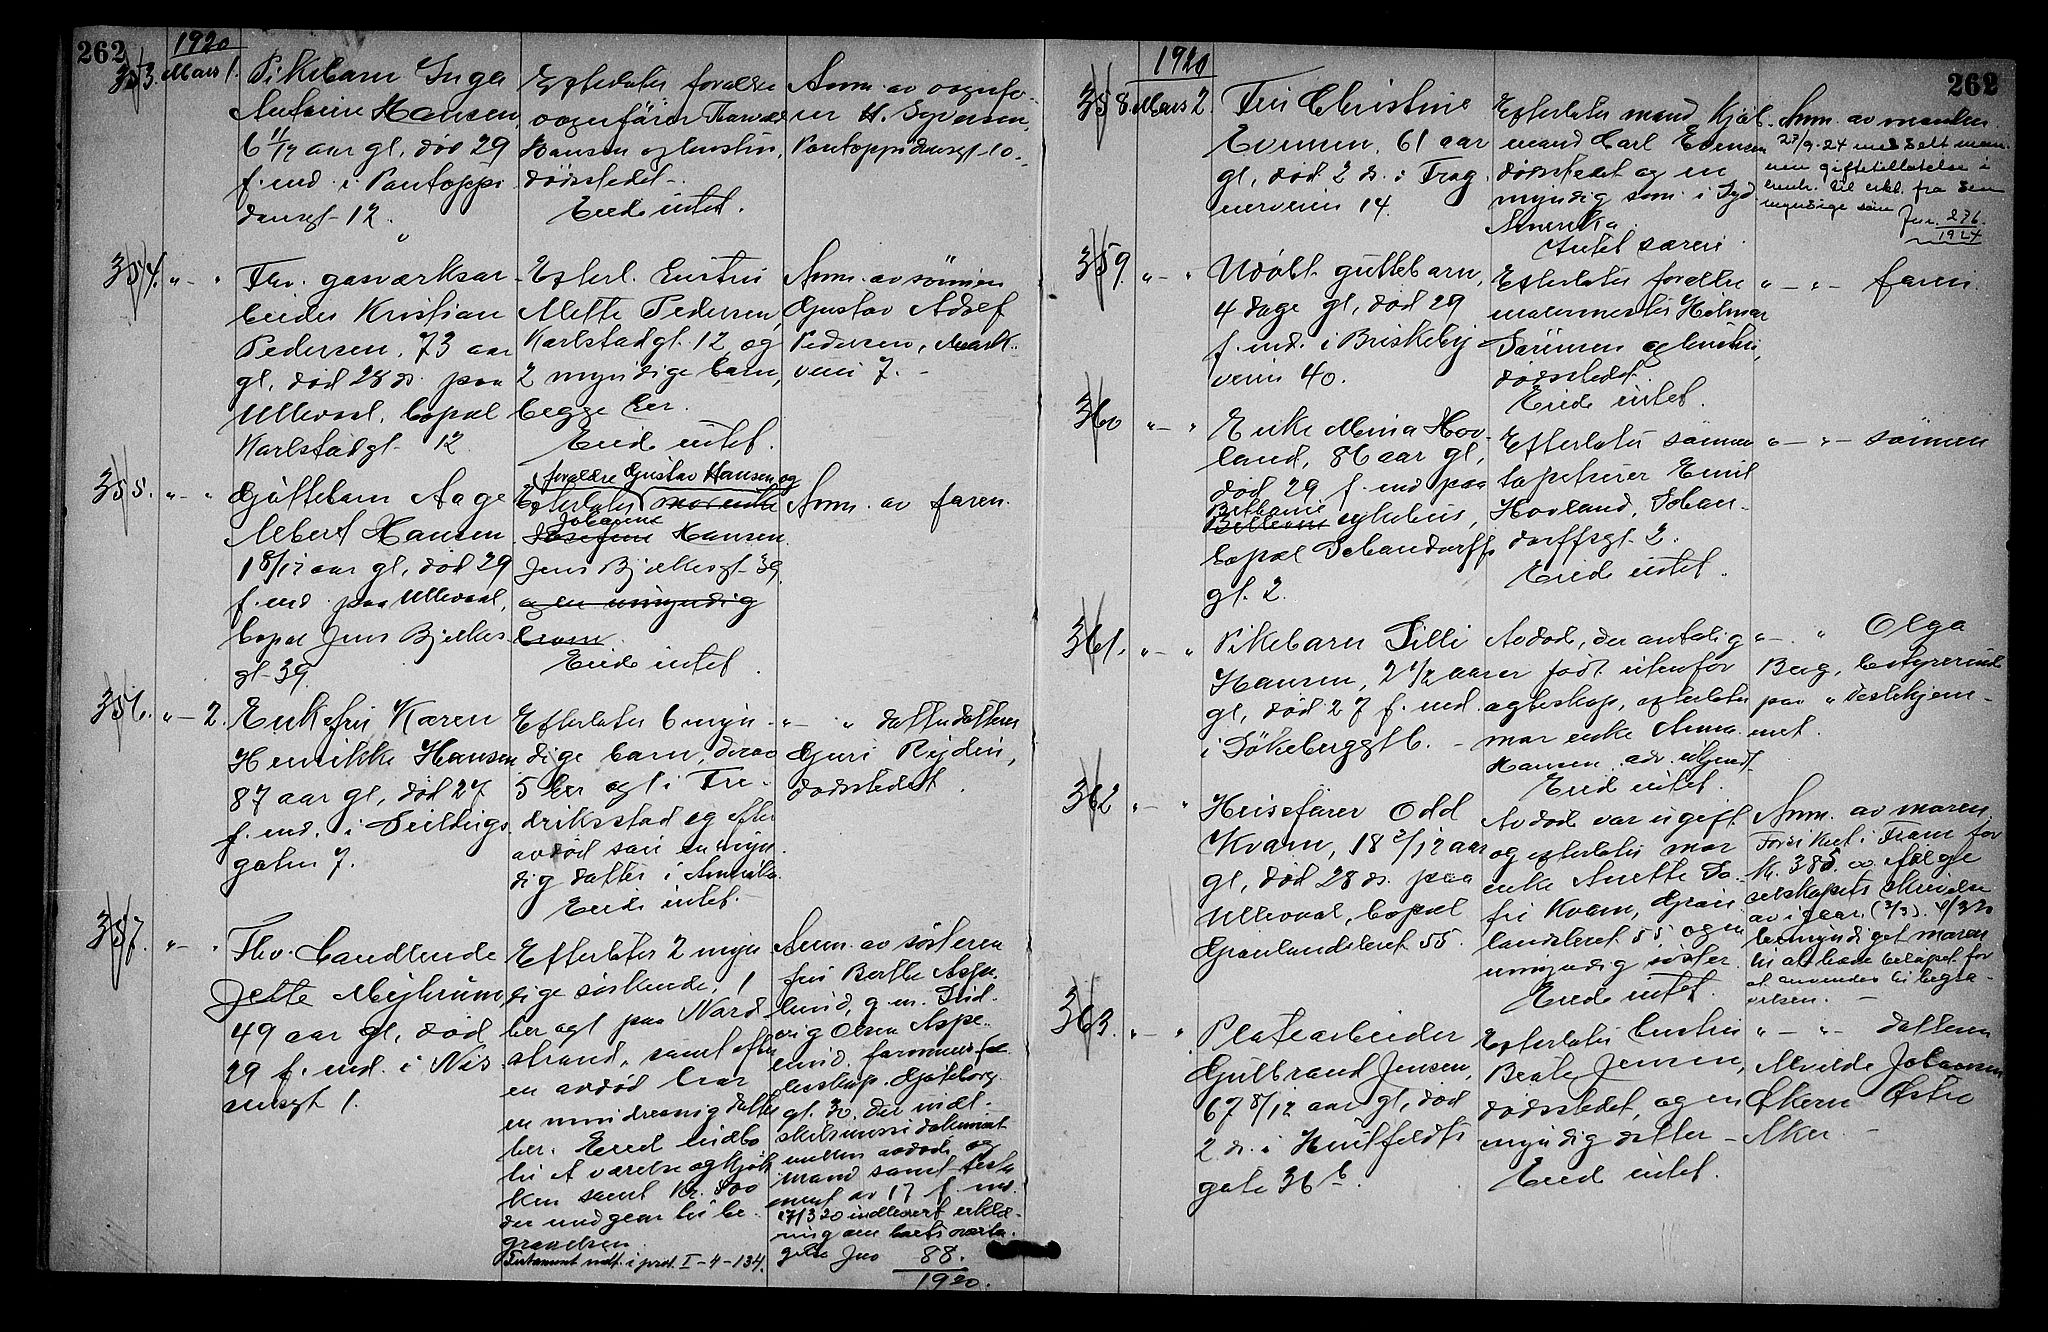 262
1920
353. Mars 1.
Pikebarn Inga
Antoine Hansen,
6 11/12 aar gl, død 29
f. md. i Pontoppi
dansgt 12.
Efterlater forældre
vognfører Thorvald
Hansen og hustru,
dødsstedet.
Eiede intet.
Anm. av vognfø-
rer H. Syversen,
Pontoppidansgt 10.
354. " - "
Fhv. gasværksar-
beider Kristian
Pedersen, 73 aar
gl, død 28 ds. paa
Ullevaal, bopæl
Karlstadgt. 12.
Efterl. Enstru
Mette Pedersen,
Karlstadgt. 12 og
2 myndige barn,
begge her.
Eiede intet.
Anm. av sønnen
Gustav Adolf
Pedersen, Mark-
veien 7.
355. " - "
Gjuttebarn Aage
Albert Hansen
1 8/12 aar gl, død 29
f. md. paa Ullevaal,
bopæl Jens Bjelkes
gt 39.
forældre Gustav Hansen og
Efterlater mor enke
Johanne
Josefine Hansen.
Jens Bjelkesgt 39.
og en umyndig
bror.
Eiede intet.
Anm. av faren.
356. " - 2.
Enkefru Karen
Henrikke Hansen
87 aar gl, død 27
f. md. i Schultz
gaten 7.
Efterlater 6 myn-
dige barn, derav
5 her og 1 i Fre-
driksstad og efter
avdød søn en myn-
dig datter i Amerika.
Eiede intet.
" - " datterdatteren
Guri Rydin,
dødsstedet.
357. " - "
Fhv. handlende
Jette Mejlrum,
49 aar gl, død
29 f. md. i Nis-
sensgt 1.
Efterlater 2 myn
dige søskende, 1
her og 1 paa Nord-
strand, samt efter
en avdød bror
en mindreaarig datter
her. Eied indbo
til 1 værelse og kjøk
ken samt Kr. 800
der medgaar til be-
gravelsen.
Testament indt. i prot. I - 4 - 134.
Anm. av søsteren
fru Berthe Aspe
lund, g. m. Lud
vig Olsen Aspe-
lund,
Gjøteborg
gt. 30. der indl.
skilsmissedokument
mellem avdøde og
mand samt testa
ment av 17 f. md.
17/3 20 indlevert erklæ-
ring om boets overta-
gelse Jno 88.
1920.
262
1920
358. Mars 2.
Fru Christine
Evensen, 61 aar
gl, død 2 ds. i Frog-
nerveien 14.
Efterlater mand Kjøb-
mand Carl Evensen
dødsstedet og en
myndig søn i Syd
Amerika
Intet særeie
Anm. av manden
27/9-24 meddelt man-
nen giftetillatelse i
henh. til erkl. fra den
myndige søn Jnr. 276
1924
359. " - "
Udøbt guttebarn,
4 dage gl, død 29
f. md. i Briskeby
veien 40.
Efterlater forældre
malermester Holmar
Sørensen og hustru,
dødsstedet.
Eiede intet.
" - " - faren.
360 " - "
Enke Mina Hov-
land, 86 aar gl,
død 29 f. md paa
Bethanie
sykehus,
bopæl Schandorffs
gt. 2.
Efterlater sønnen
tapetserer Emil
Hovland, Schan-
dorffsgt. 2.
Eiede intet.
" - " - sønnen
361. " - "
Pikebarn Lilli
Hansen, 2 1/2 aar
gl, død 27 f. md.
i Økeberggt 6.
Avdøde, der antagelig
er født utenfor
egteskap, efterlater
mor enke Anna
Hansen adr. ukjendt.
Eied intet.
" - " Olga
Berg, bestyrerinde
paa
met.
362 " - "
Heisefører Odd
Kvam, 18 2/12 aar
gl, død 28 ds. paa
Ullevaal, bopæl
Grønlandsleret 55.
Avdøde var ugift
og efterlater mor
enke Anette So-
fie Kvam, Grøn
landsleret 55, og en
umyndig søster.
Eiede intet.
Anm. av moren.
Forsikret i Fram for
kr. 385. Ifølge
selskapets skrivelse
av igaar (2/3). 4/3 20
bemyndiget moren
til at hæve beløpet for
at anvendes til begra-
velsen.
363. " - "
Platearbeider
Gulbrand Jensen,
67 8/12 aar gl, død
2 ds. i Huitfeldts
gate 36 b.
Efterlater hustru
Beate Jensen,
dødsstedet, og en
myndig datter -
Eied intet.
" - " - datteren
Alvilde Johansen
Økern Østre
Aker.